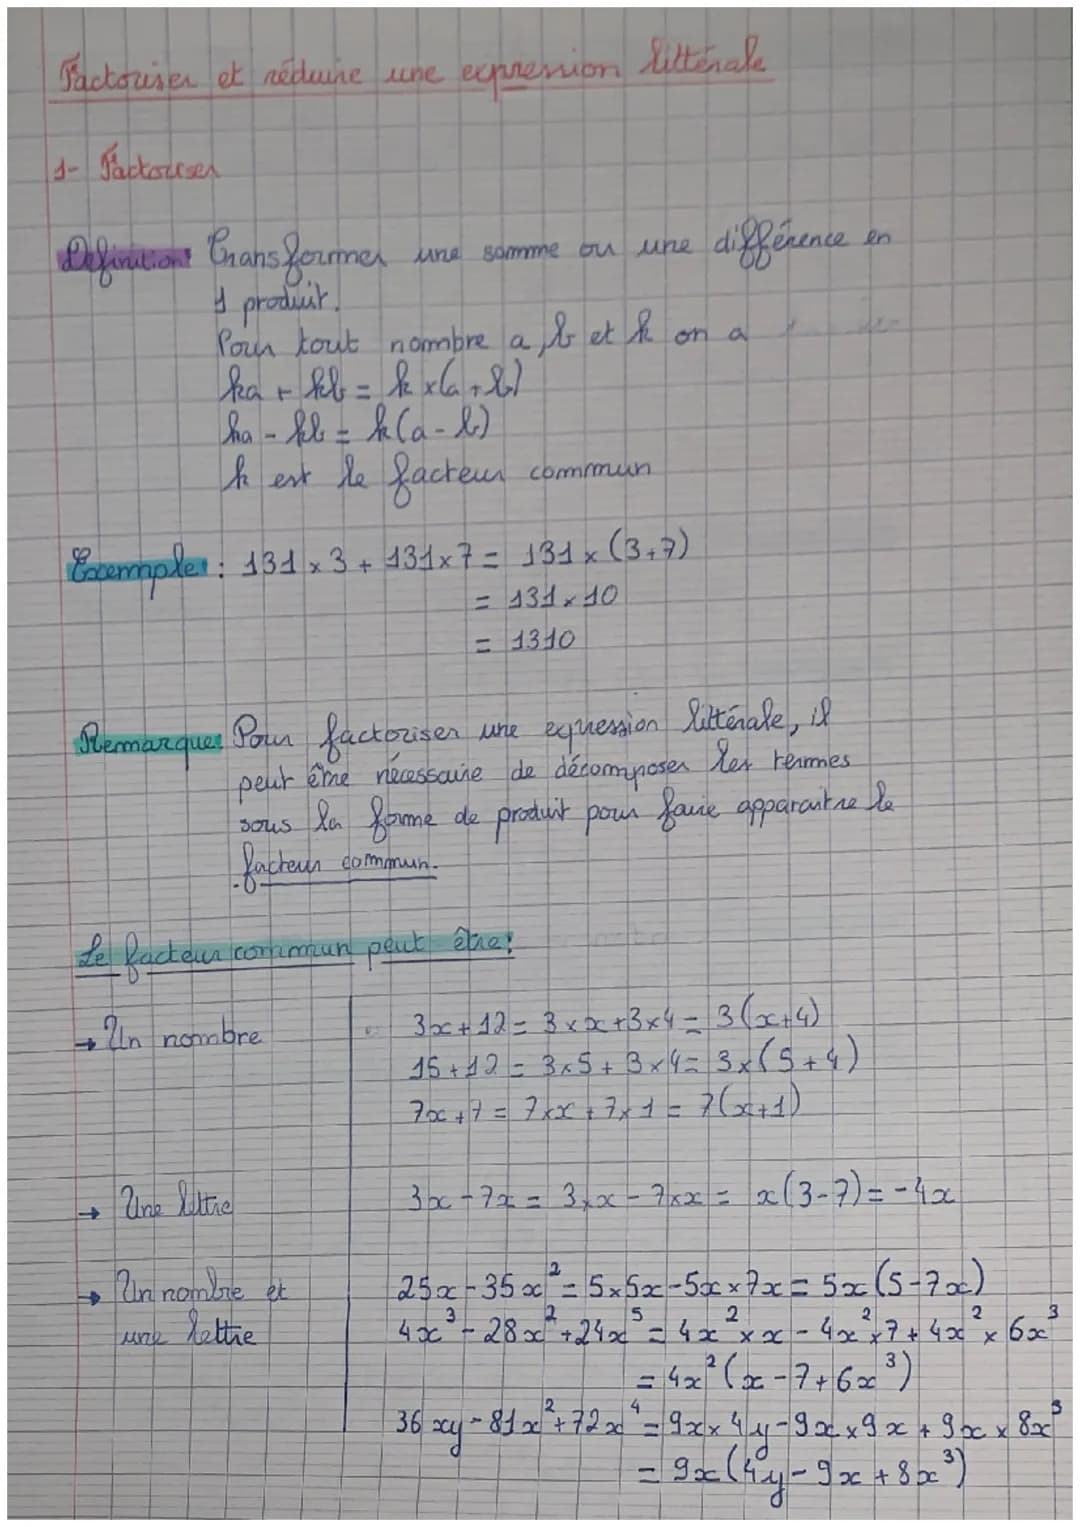 Factoriser et réduire une expression littérale
1- Factoriser
Définition: Transformer une somme ou une différence en
1 produit.
Pour tout nombre a, b et k on a
ka + kb = k x(a + b)
ka - kb = k(a - b)
k est le facteur commun
Exemple: : 131 x 3 + 131 x 7 = 131 x (3+7)
= 131 x 10
= 1310
Remarque: Pour factoriser une expression littérale, il
peut être nécessaire de décomposer les termes
sous la forme de produit pour faire apparaitre le
facteur commun.
Le facteur commun peut être:
→ Un nombre
3x + 12 = 3 × x + 3×4 = 3(x+4)
15 + 12 = 3×5 + 3×4 = 3×(5+4)
7x + 7 = 7×x + 7×1 = 7(x+1)
→ Une lettre
3x - 7x = 3×x - 7×x = x(3-7) = -4x
→ Un nombre et
une lettre
25x - 35x² = 5×5x - 5x×7x = 5x(5-7x)
4x³ - 28x² + 24x⁵ = 4x²×x - 4x²×7 + 4x²×6x³
= 4x²(x - 7 + 6x³)
36xy - 81x² + 72x⁴ = 9x×4y - 9x×9x + 9x×8x³
= 9x(4y - 9x + 8x³)